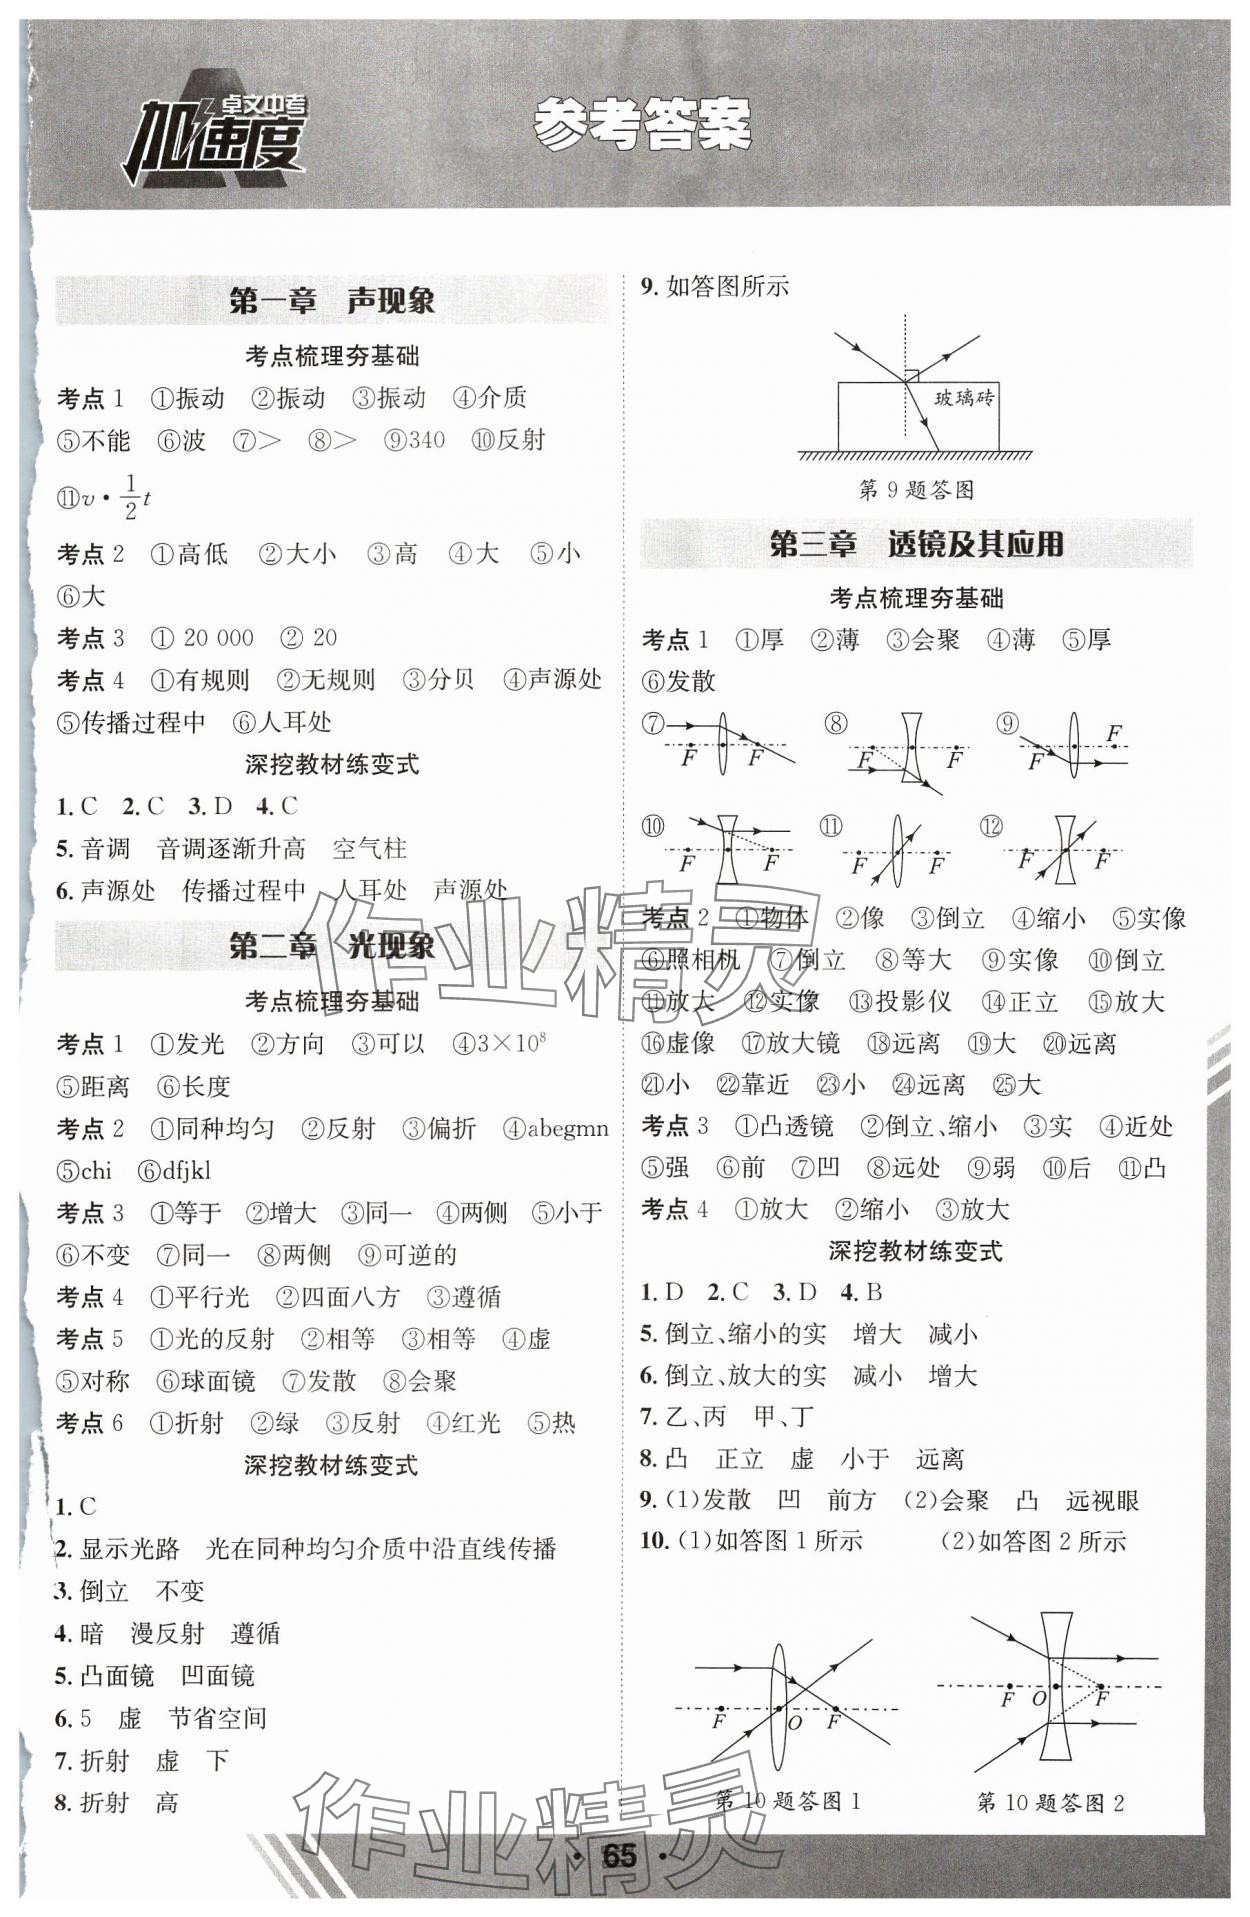 卓文中考
加速度
参考答案
第一章　声现象
考点梳理夯基础
考点 1　①振动　②振动　③振动　④介质
⑤不能　⑥波　⑦>　⑧>　⑨340　⑩反射
⑪v·1/2t
考点 2　①高低　②大小　③高　④大　⑤小
⑥大
考点 3　① 20 000　② 20
考点 4　①有规则　②无规则　③分贝　④声源处
⑤传播过程中　⑥人耳处
深挖教材练变式
1. C　2. C　3. D　4. C
5. 音调　音调逐渐升高　空气柱
6. 声源处　传播过程中　人耳处　声源处
第二章　光现象
考点梳理夯基础
考点 1　①发光　②方向　③可以　④3×10⁸
⑤距离　⑥长度
考点 2　①同种均匀　②反射　③偏折　④abegmn
⑤chi　⑥dfjkl
考点 3　①等于　②增大　③同一　④两侧　⑤小于
⑥不变　⑦同一　⑧两侧　⑨可逆的
考点 4　①平行光　②四面八方　③遵循
考点 5　①光的反射　②相等　③相等　④虚
⑤对称　⑥球面镜　⑦发散　⑧会聚
考点 6　①折射　②绿　③反射　④红光　⑤热
深挖教材练变式
1. C
2. 显示光路　光在同种均匀介质中沿直线传播
3. 倒立　不变
4. 暗　漫反射　遵循
5. 凸面镜　凹面镜
6. 5　虚　节省空间
7. 折射　虚　下
8. 折射　高
9. 如答图所示
玻璃砖
第 9 题答图
第三章　透镜及其应用
考点梳理夯基础
考点 1　①厚　②薄　③会聚　④薄　⑤厚
⑥发散
⑦ F F　⑧ F F　⑨ F F
⑩ F F　⑪ F F　⑫ F F
考点 2　①物体　②像　③倒立　④缩小　⑤实像
⑥照相机　⑦倒立　⑧等大　⑨实像　⑩倒立
⑪放大　⑫实像　⑬投影仪　⑭正立　⑮放大
⑯虚像　⑰放大镜　⑱远离　⑲大　⑳远离
㉑小　㉒靠近　㉓小　㉔远离　㉕大
考点 3　①凸透镜　②倒立、缩小　③实　④近处
⑤强　⑥前　⑦凹　⑧远处　⑨弱　⑩后　⑪凸
考点 4　①放大　②缩小　③放大
深挖教材练变式
1. D　2. C　3. D　4. B
5. 倒立、缩小的实　增大　减小
6. 倒立、放大的实　减小　增大
7. 乙、丙　甲、丁
8. 凸　正立　虚　小于　远离
9. (1)发散　凹　前方　(2)会聚　凸　远视眼
10. (1)如答图 1 所示　(2)如答图 2 所示
F O F　F O F
第 10 题答图 1　第 10 题答图 2
作业精灵
作业精灵
· 65 ·